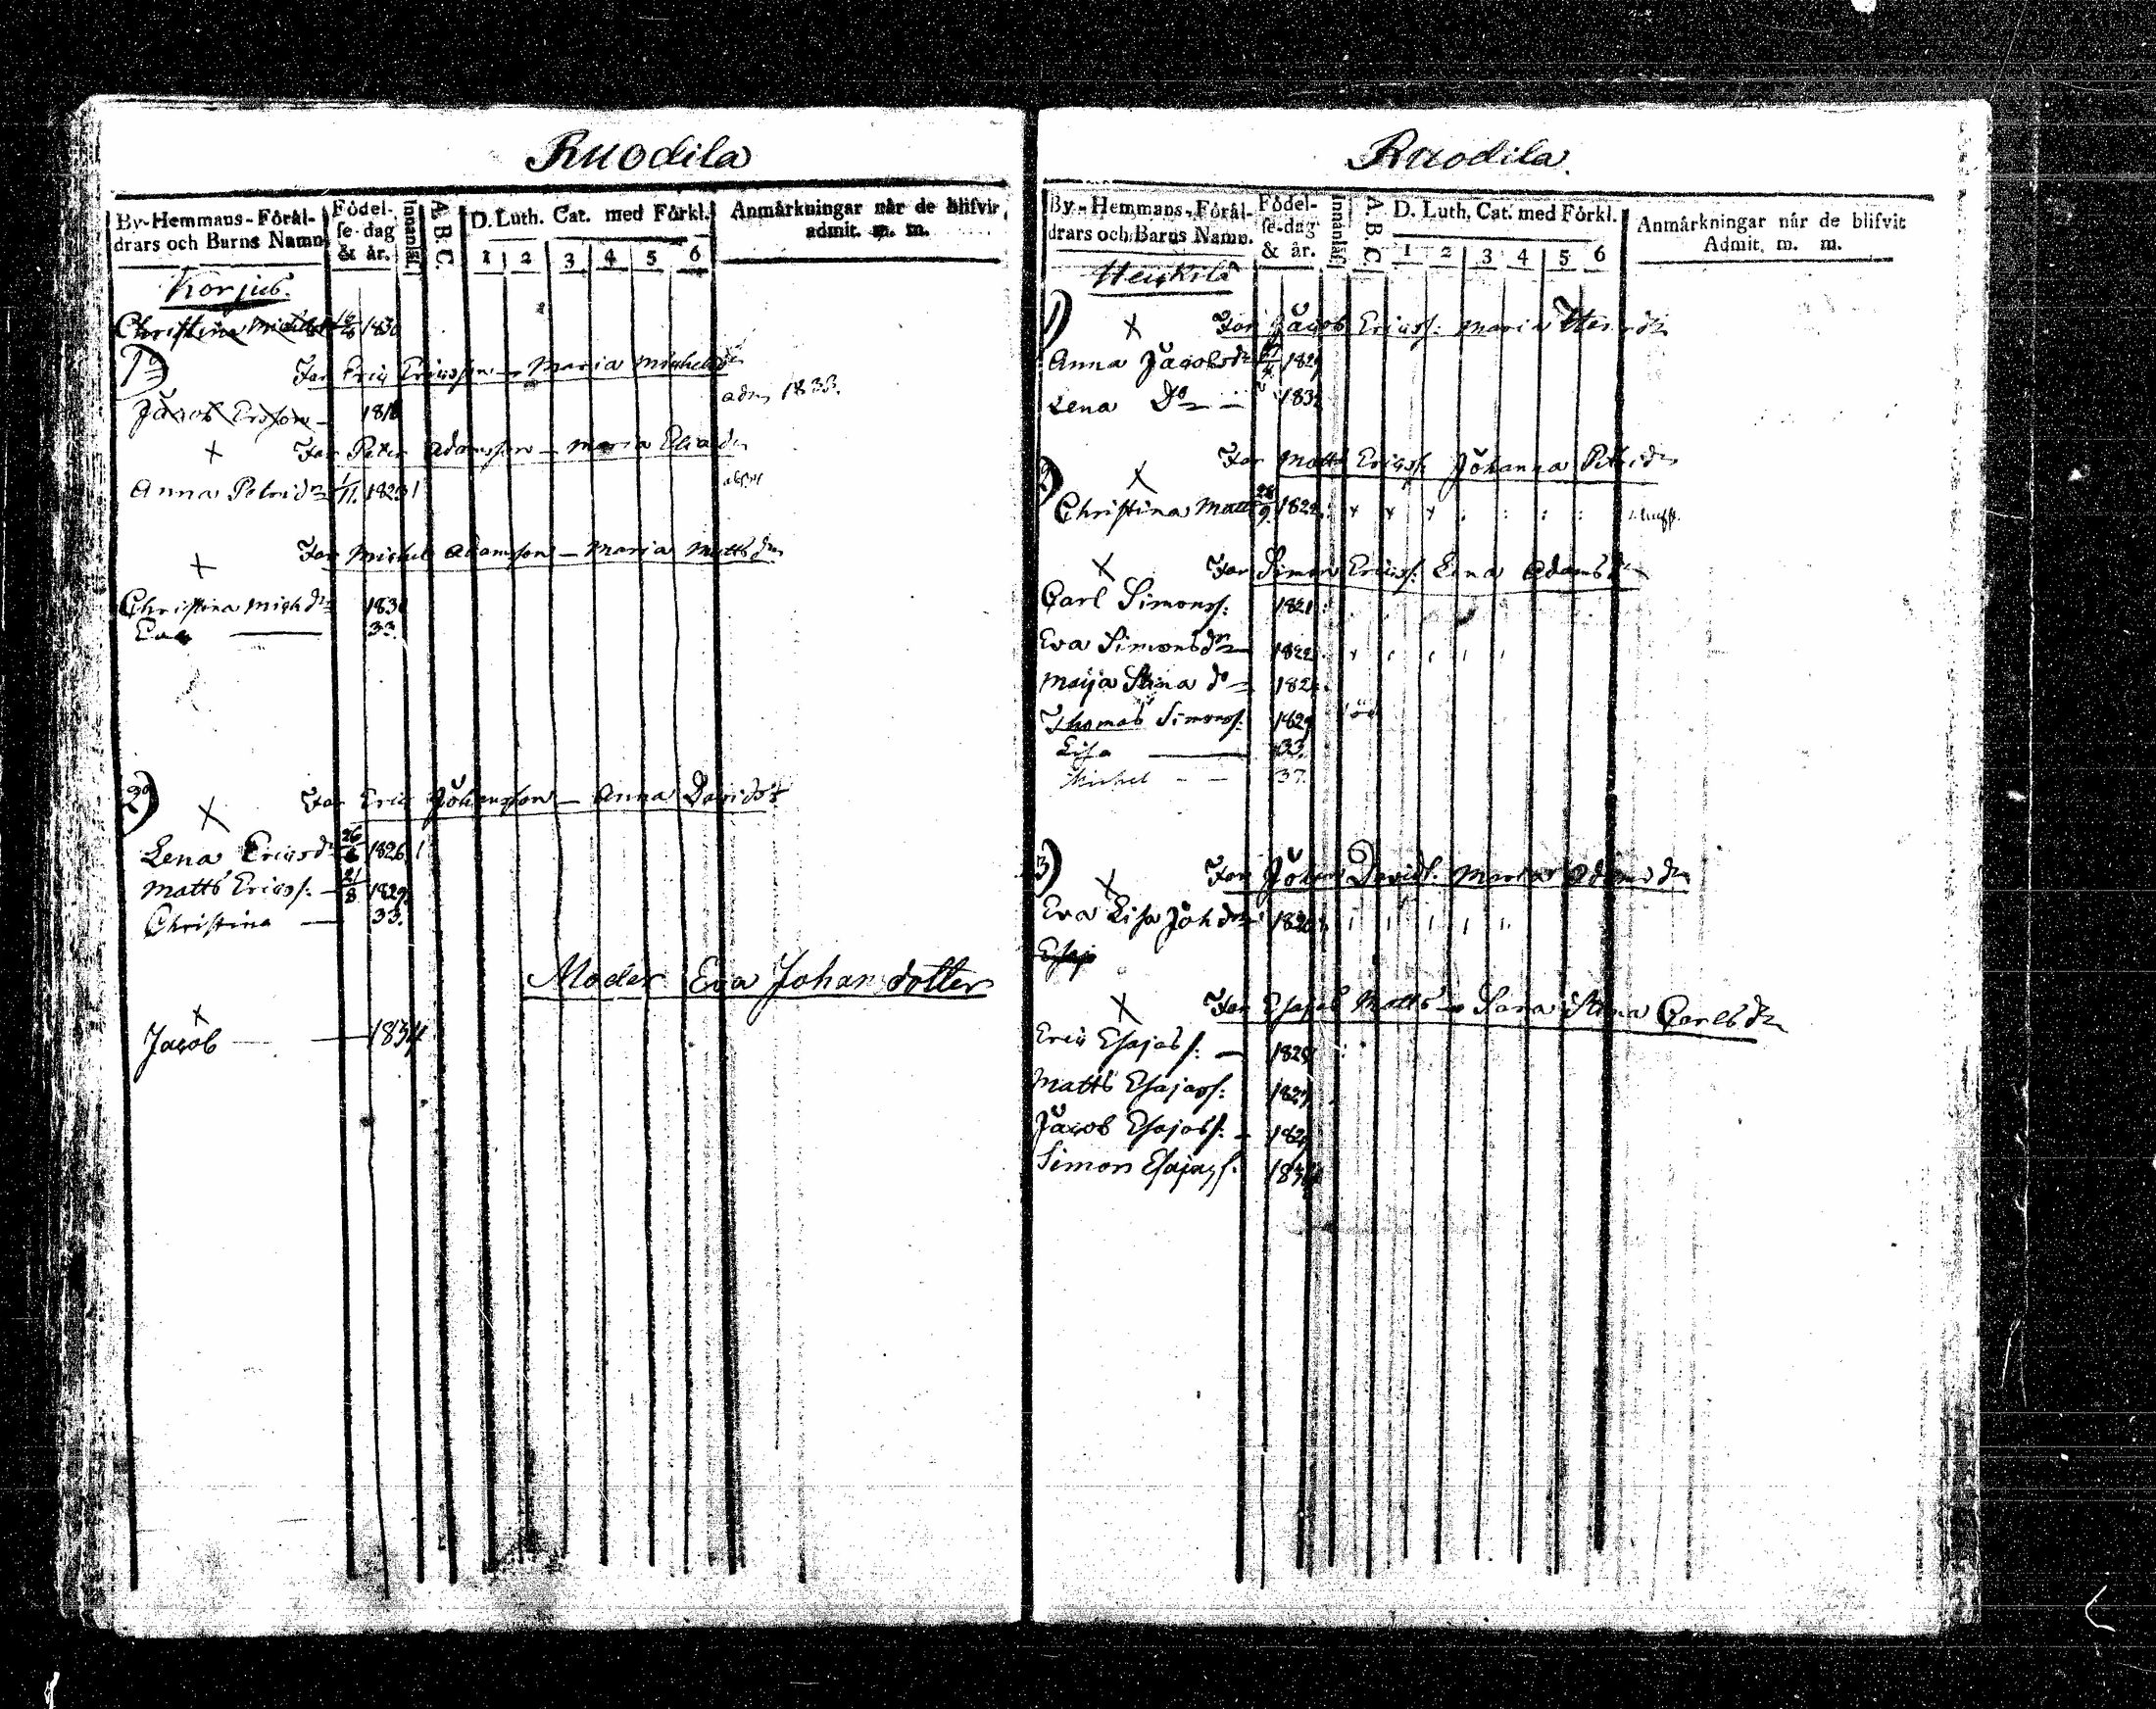 Ruodila
By-Hemmans-Föräl-
drars och Barns Namn
Födel-
se-dag
& år.
Innanläs.
A. B. C.
D. Luth. Cat. med Förkl.
1 2 3 4 5 6
Anmärkningar när de blifvit
admit. m. m.
Korjus.
Christina 1830
1º)
For Eric Ericsson — Maria Michelsdr
Jacob Ersson — 1818 adm 1833.
x For Peter Adamsson — Maria Eliædr
Anna Petridr 1/11 1823
x For Michel Adamsson — Maria Mattsdr
Christina Michdr 1830
Eva — 33.
2º)
x For Eric Johansson — Anna Davidsdr
Lena Ericsdr 26/6 1826
Matts Ericss. — 21/8 1829
Christina — 33.
Moder Eva Johansdotter
x
Jacob — 1834
Ruodila.
By-Hemmans-Föräl-
drars och Barns Namn.
Födel-
se-dag
& år.
Innanläs.
A. B. C.
D. Luth. Cat. med Förkl.
1 2 3 4 5 6
Anmärkningar når de blifvit
Admit. m. m.
Heikilä
1) x For Jacob Ericss: Maria
Anna Jacobsdr 1829
Lena Do — 183
2) x For Matts Ericss. Johanna Petridr
Christina Matts 28/9 1822
x For Simon Ericss: Lena Adamsdr
Carl Simonss. 1821
Eva Simonsdr 1822
Maija Stina do 182
Thomas Simonss. 1829
Lisa — 33.
Michel — — 37.
3) x For Johan Davids. Maria Adamsdr
Eva Lisa Johdr 1820
x For Esajas Matts — Sara Stina Carlsdr
Eric Esajass. — 182
Matts Esajass. 1827
Jacob Esajass. — 1829
Simon Esajass. 1834